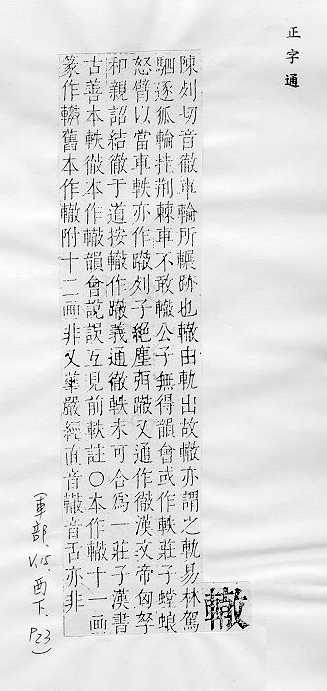 正字通
轍
陳列切音徹車輪所輾跡也轍由軌出故轍亦謂之軌易林駕
駟逐狐輪挂荆棘車不敢轍公子無得韻會或作軼莊子螳蜋
怒臂以當車軼亦作𨅊列子絕塵弭𨅊又通作徹漢文帝匈孥
和親詔結徹于道按轍作𨅊義通徹軼未可合爲一莊子漢書
古善本軼徹本作轍韻會說誤互見前軼註〇本作轍十一画
篆作舊本作轍附十二画非又華嚴經直音轍音舌亦非
(車部. V.15. 酉下. P.23)